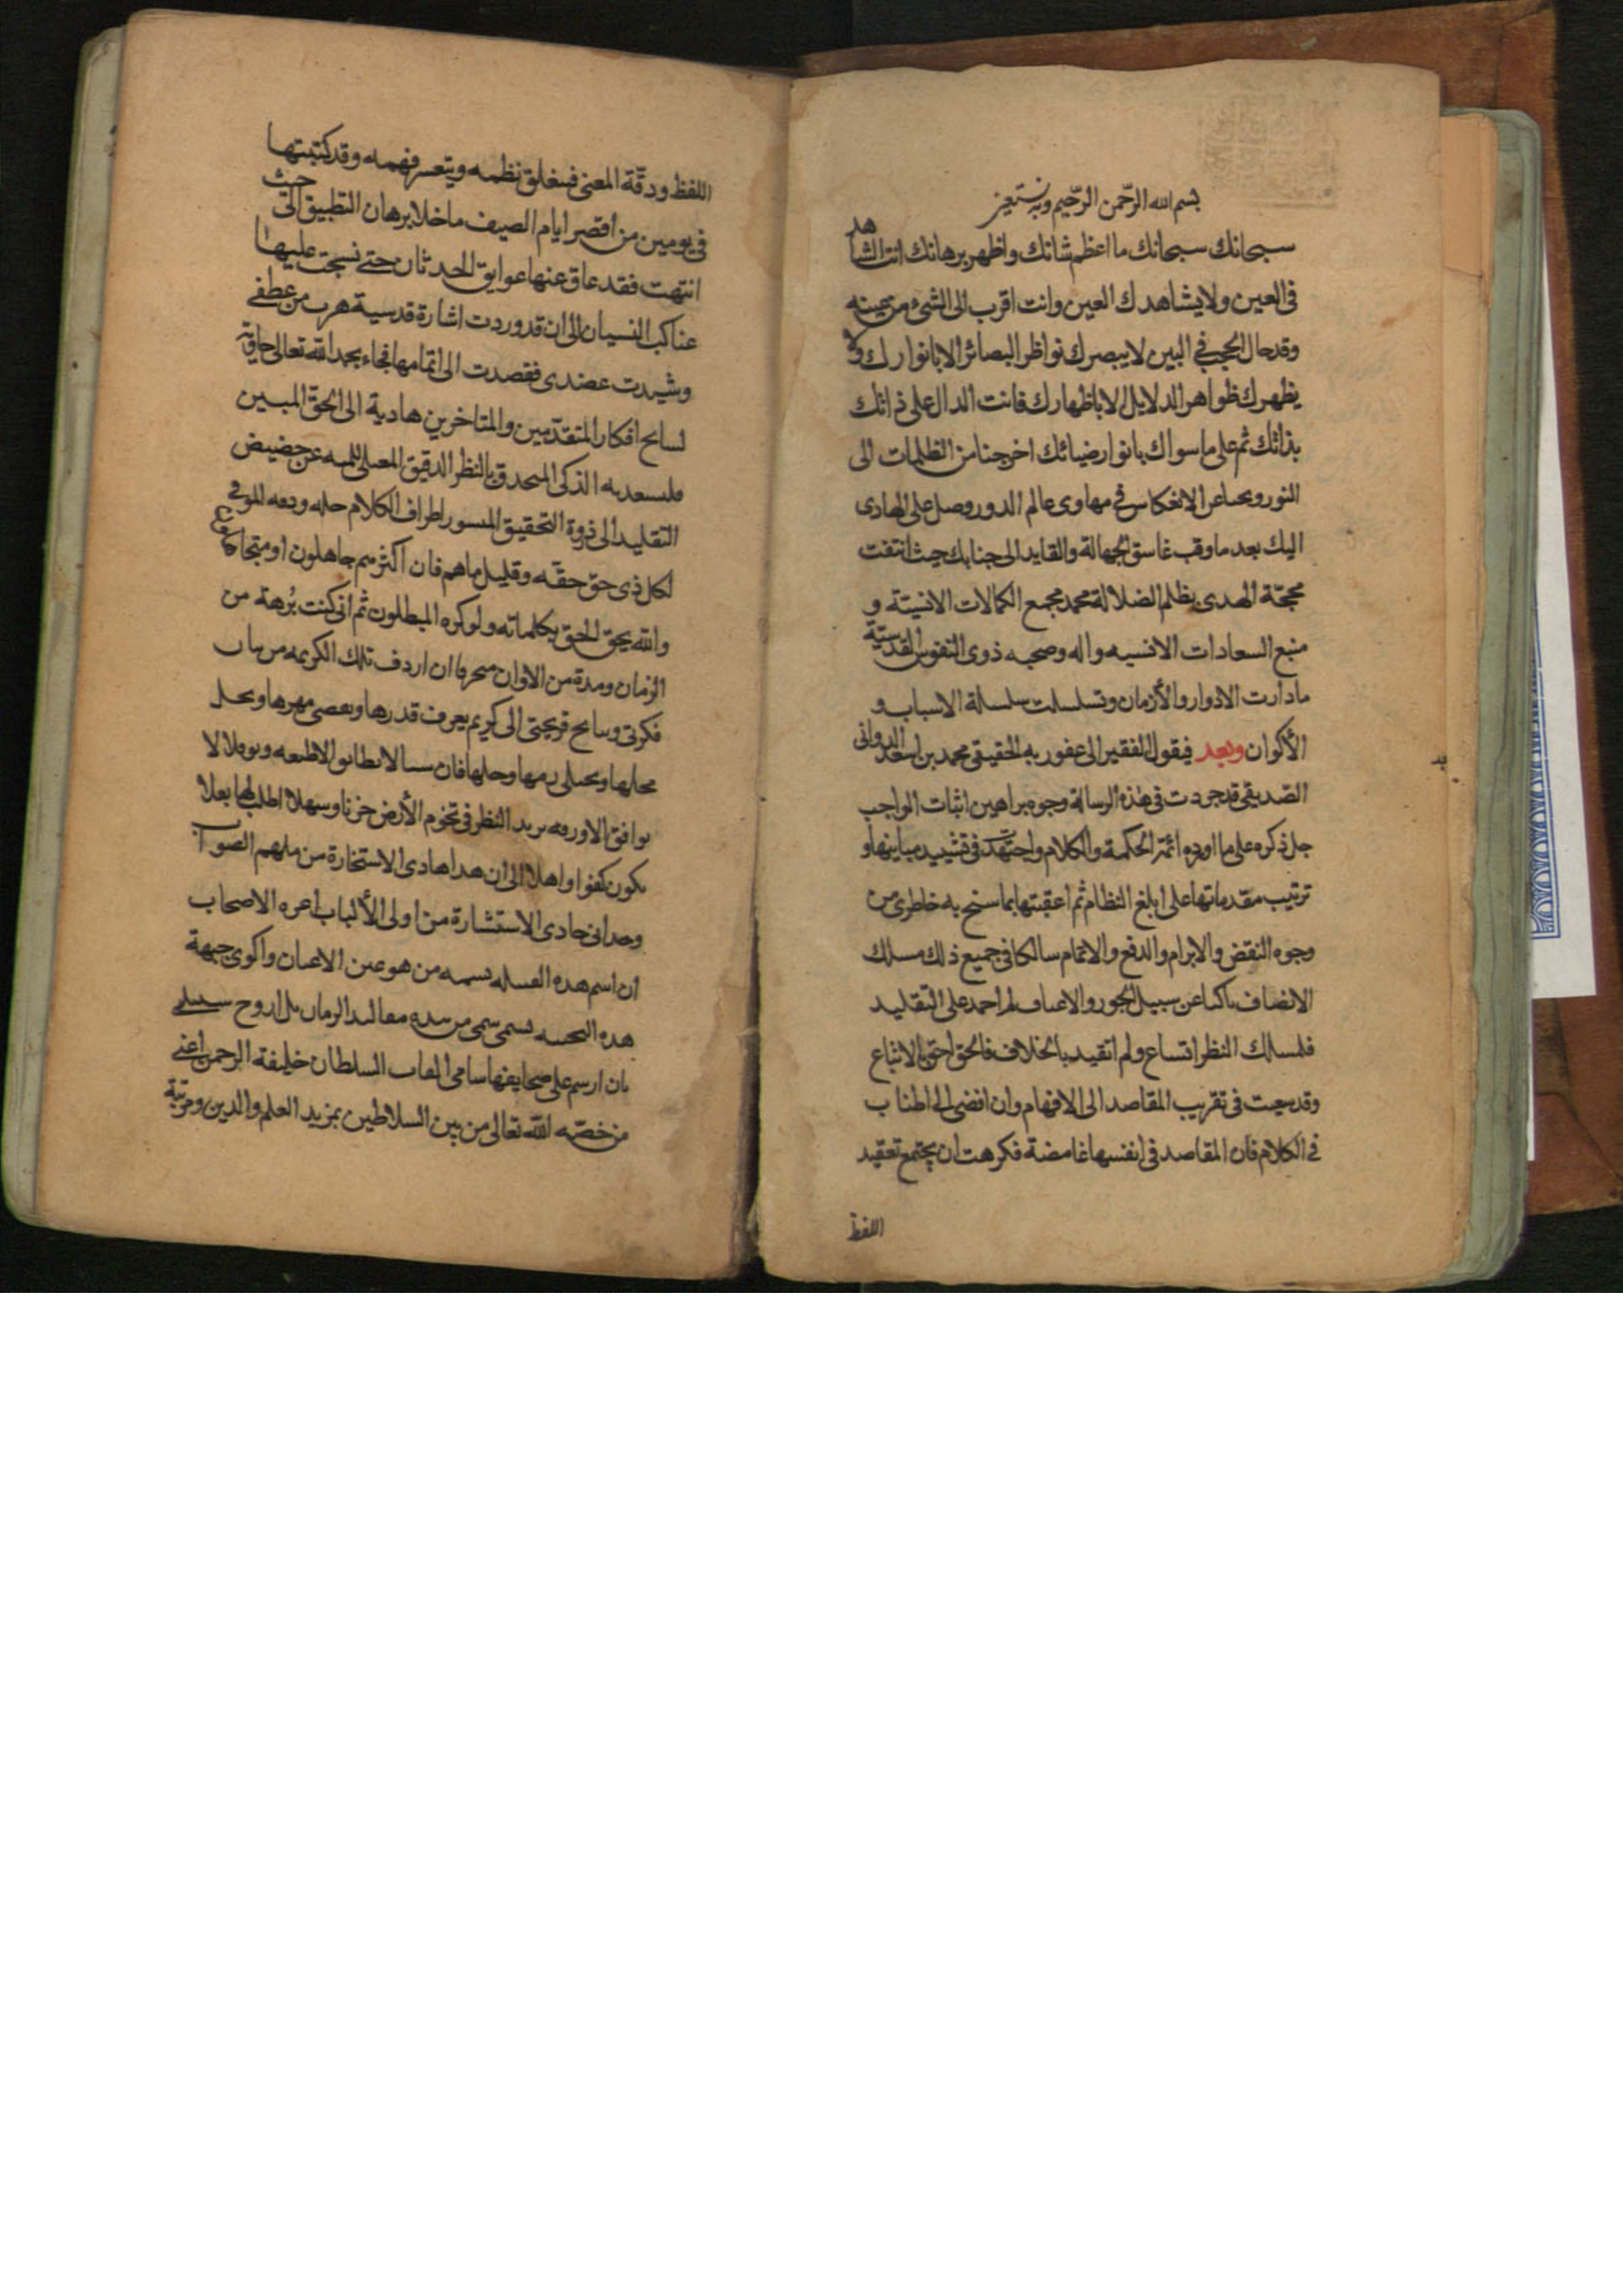 بسم الله الرّحمن الرّحيم وبه نستعين
سبحانك سبحانك ما اعظم شانك واظهر برهانك انت الشاهد
فى العين ولا يشاهدك العين وانت اقرب الى الشئ من عينه
وقد حال الحجب فى البين لا يبصرك نواظر البصائر الا بانوارك ولا
يظهرك ظواهر الدلايل الا باظهارك فانت الدال على ذاتك
بذاتك ثم على ما سواك بانوار ضيائك اخرجنا من الظلمات الى
النور ونجنا عن الانعكاس فى مهاوى عالم الدور وصل على الهادى
اليك بعد ما وقب غاسق الجهالة والقايد الى جنابك حيث انتفت
محجّة الهدى بظلم الضلالة محمد مجمع الكمالات الانسيّة و
منبع السعادات الانسيه واله وصحبه ذوى النفوس القدسيّة
ما دارت الادوار والأزمان وتسلسلت سلسلة الاسباب و
الأكوان وبعد فيقول الفقير الى عفو ربه الحقيقى محمد بن اسعد الدوانى
الصّديقى قد جردت فى هذه الرسالة وجوه براهين اثبات الواجب
جل ذكره على ما اورده ائمّة الحكمة والكلام واجتهدت فى تشييد مبانيها و
ترتيب مقدماتها على ابلغ النظام ثم اعقبتها بما سنح به خاطرى من
وجوه النقض والابرام والدفع والاتمام سالكا فى جميع ذلك مسلك
الانصاف ناكبا عن سبيل الجور والاعساف لم احمد على التقليد
فلمسلك النظر اتساع ولم اتقيد بالخلاف فالحق احق بالاتباع
وقد سعيت فى تقريب المقاصد الى الافهام وان افضى الى اطناب
فى الكلام فان المقاصد فى انفسها غامضة فكرهت ان يجتمع تعقيد
اللفظ
اللفظ ودقّة المعنى فينغلق نظمه ويتعسر فهمه وقد كتبتها
فى يومين من اقصر ايام الصيف ما خلا برهان التطبيق الى حيث
انتهت فقد عاق عنها عوايق الحدثان حتى نسجت عليها
عناكب النسيان الى ان قد وردت اشارة قدسية هرب من عطفى
وشيدت عضدى فقصدت الى اتمامها فجاء بحمد الله تعالى حاوية
لسايح افكار المتقدّمين والمتاخرين هادية الى الحقّ المبين
فليسعد به الذكى المتحدق بالنظر الدقيق المعلى عن حضيض
التقليد الى ذروة التحقيق باطراف الكلام حله ودفعه الموفى
لكل ذى حقّ حقّه وقليل ما هم فان اكثرهم جاهلون او متجاهلون
والله يحق الحق بكلماته ولو كره المبطلون ثم انى كنت بُرهة من
الزمان ومدة من الاوان متحريا ان اردف تلك الكريمه من بنات
فكرتى وسايح قريحتى الى كريم يعرف قدرها ويعصى مهرها ويحل
محلها ويحلى
يوافق الا ورفه بريد النظر فى تخوم الأرض حزنا وسهلا اطلب لها بعلا
يكون كفوا واهلا الى ان هدانى هادى الاستخارة من ملهم الصواب
وحدانى حادى الاستشارة من اولى الألباب اعزه الاصحاب
ان اسم هذه بسمه من هو عين الاعيان واكوى جبهة
هذه سمى من بيده مقاليد الزمان بل اروح
بان ارسم على صحايفها سامى القاب السلطان خليفة الرحمن اعنى
من خصّه الله تعالى من بين السلاطين بمزيد العلم والدين ومرتبة